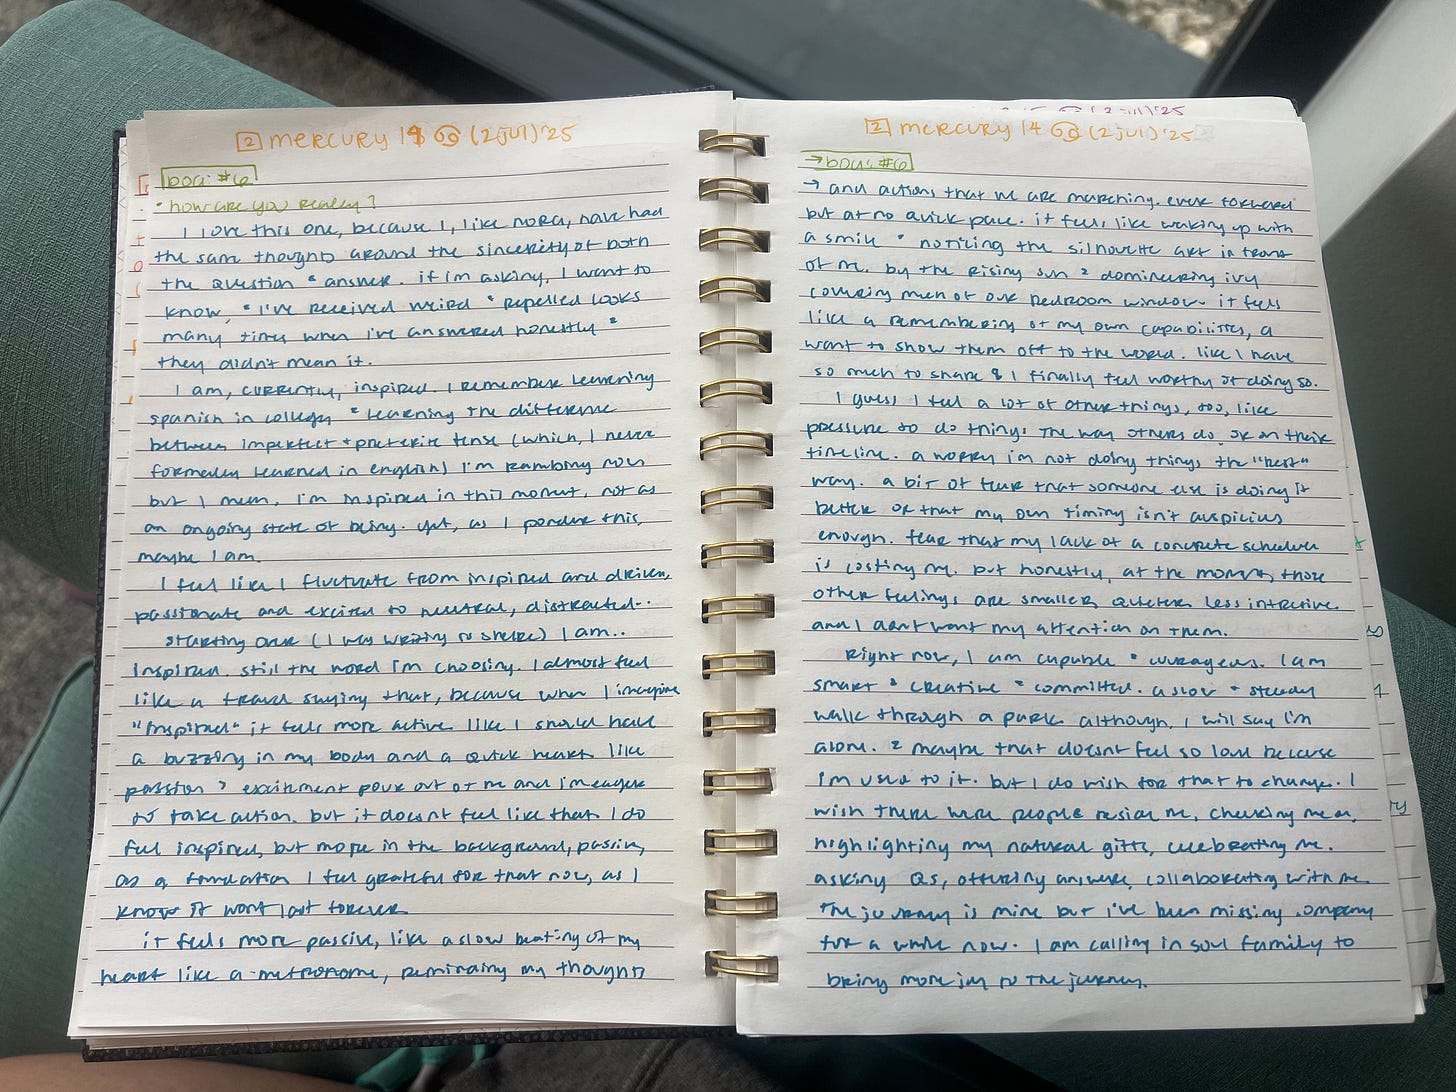 2 mercury 14 ♋ (2 jul) '25
boa: #6
• how are you really?
I love this one, because I, like nora, have had
the same thoughts around the sincerity of both
the question & answer. if I'm asking, I want to
know, & I've received weird & repelled looks
many times when I've answered honestly &
they didn't mean it.
I am, currently, inspired. I remember learning
spanish in college & learning the difference
between imperfect + preterite tense (which, I never
formally learned in english) I'm rambling now
but I mean, I'm inspired in this moment, not as
an ongoing state of being. yet, as I ponder this,
maybe I am.
I feel like I fluctuate from inspired and driven,
passionate and excited to neutral, distracted..
starting over (I was writing to share) I am..
inspired. still the word I'm choosing. I almost feel
like a fraud saying that, because when I imagine
"inspired" it feels more active. like I should have
a buzzing in my body and a quick heart. like
passion & excitement pour out of me and I'm eager
to take action. but it doesnt feel like that. I do
feel inspired, but more in the background, passive,
as a foundation I feel grateful for that now, as I
know it wont last forever.
it feels more passive, like a slow beating of my
heart like a metronome, reminding my thoughts
(2 jul) '25
2 mercury 14 ♋ (2 jul) '25
→ boa: #6
→ and actions that we are marching. ever forward
but at no quick pace. it feels like waking up with
a smile & noticing the silhouette art in front
of me. by the rising sun & domineering ivy
covering much of our bedroom window. it feels
like a remembering of my own capabilities, a
want to show them off to the world. like I have
so much to share & I finally feel worthy of doing so.
I guess I feel a lot of other things, too, like
pressure to do things the way others do, or on their
timeline. a worry i'm not doing things the "best"
way. a bit of fear that someone else is doing it
better or that my own timing isn't auspicious
enough. fear that my lack of a concrete schedule
is costing me. but honestly, at the moment, those
other feelings are smaller, quieter, less intrusive.
and I dont want my attention on them.
Right now, I am capable & courageous. I am
smart & creative & committed. a slow & steady
walk through a park although, I will say I'm
alone. & maybe that doesnt feel so loud because
I'm used to it. but I do wish for that to change. I
wish there were people beside me, cheering me on,
highlighting my natural gifts, celebrating me.
asking Qs, offering answers, collaborating with me.
The journey is mine but I've been missing company
for a while now. I am calling in soul family to
bring more joy to the journey.